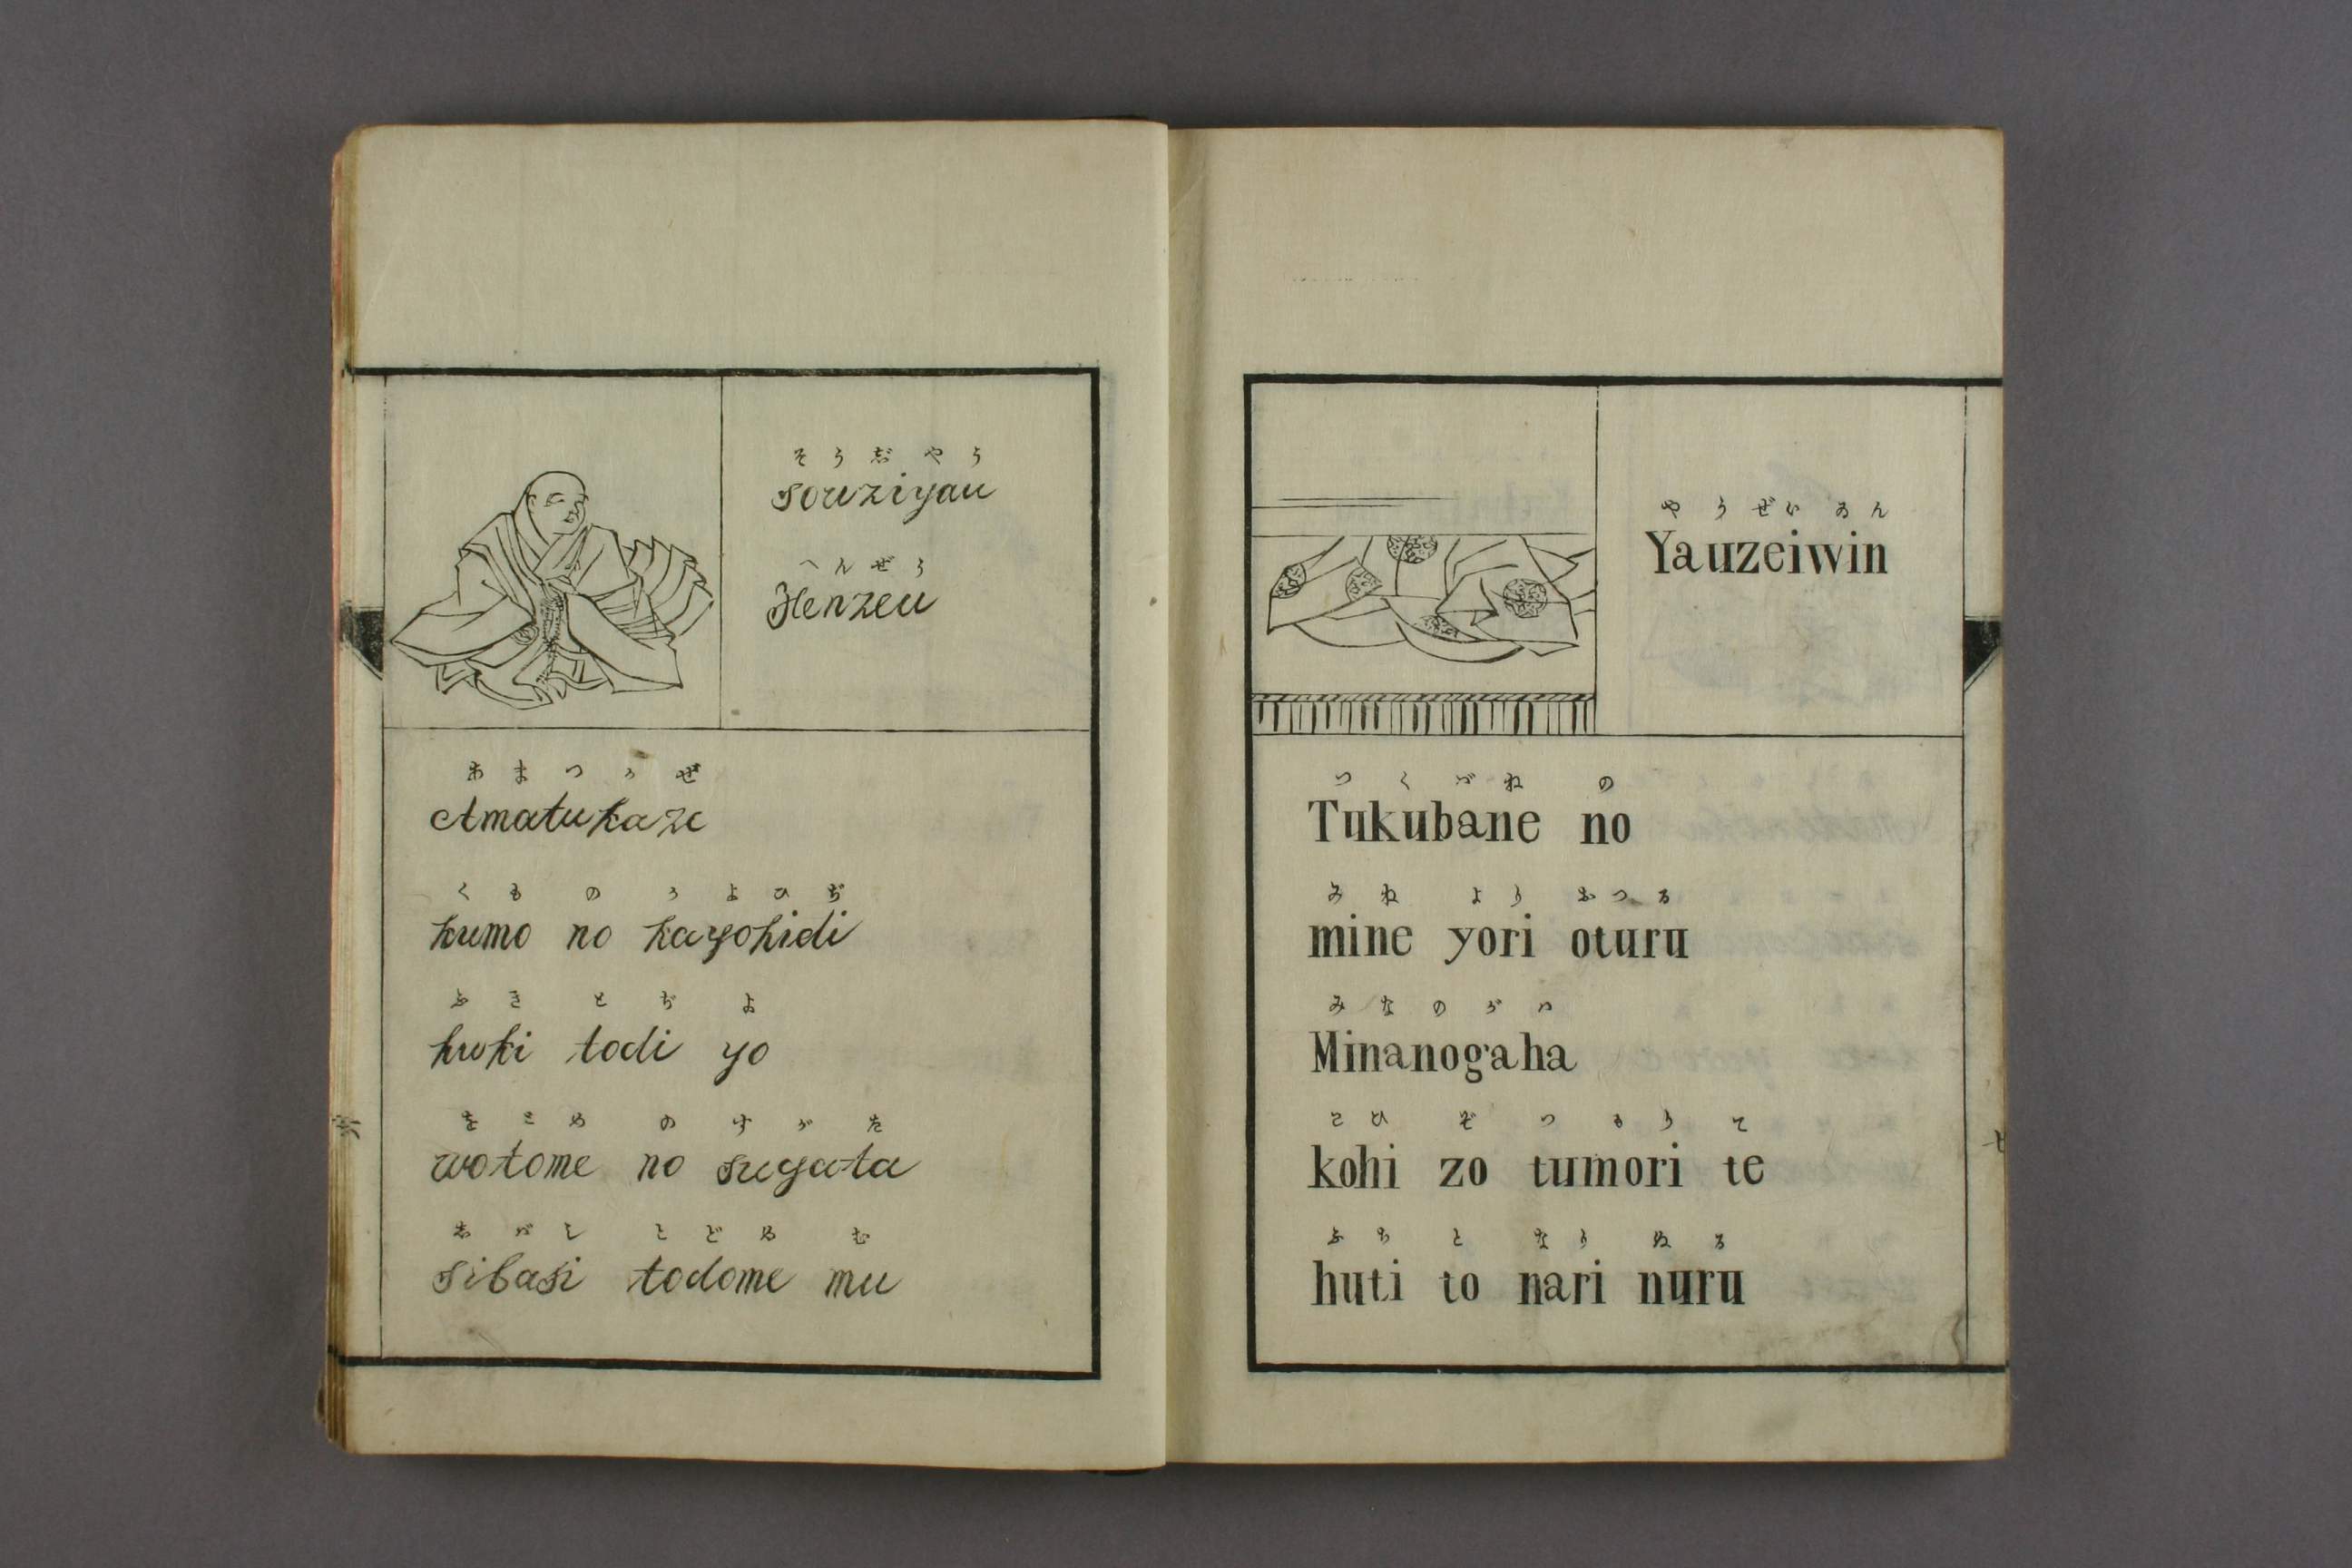 そうじやう
Souziyau
へんぜう
Henzeu
あまつかぜ
Amatukaze
くも の かよひぢ
kumo no kayohidi
ふき とぢ よ
huki todi yo
をとめ の すがた
wotome no sugata
しばし とどめ む
sibasi todome mu
六
やうぜいゐん
Yauzeiwin
つくばね の
Tukubane no
みね より おつる
mine yori oturu
みなのがは
Minanogaha
こひ ぞ つもり て
kohi zo tumori te
ふち と なり ぬる
huti to nari nuru
七